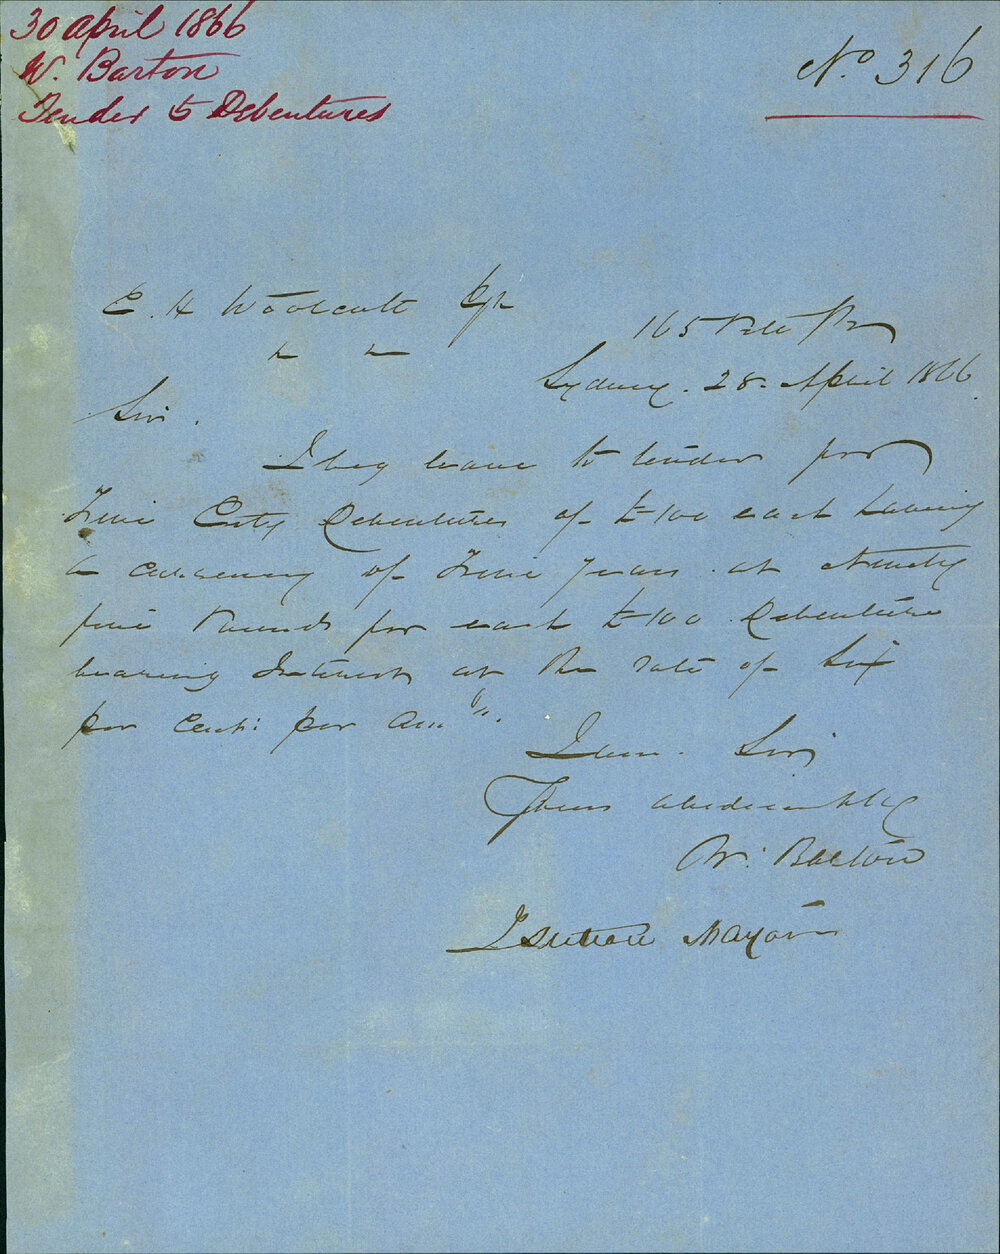 30 April 1866
W. Barton
Tender to Debentures
No. 316
E. H. Woolcott Esqr
165 Pitt St
Sydney. 28. April 1866
Sir.
I beg leave to tender for
Five City Debentures of £100 each having
a currency of Five years at Ninety
five Pounds for each £100 Debenture
bearing Interest at the rate of Six
per Cent: per Ann".
I am. Sir
Yours obediently
W. Barton
J Sutton Mayor